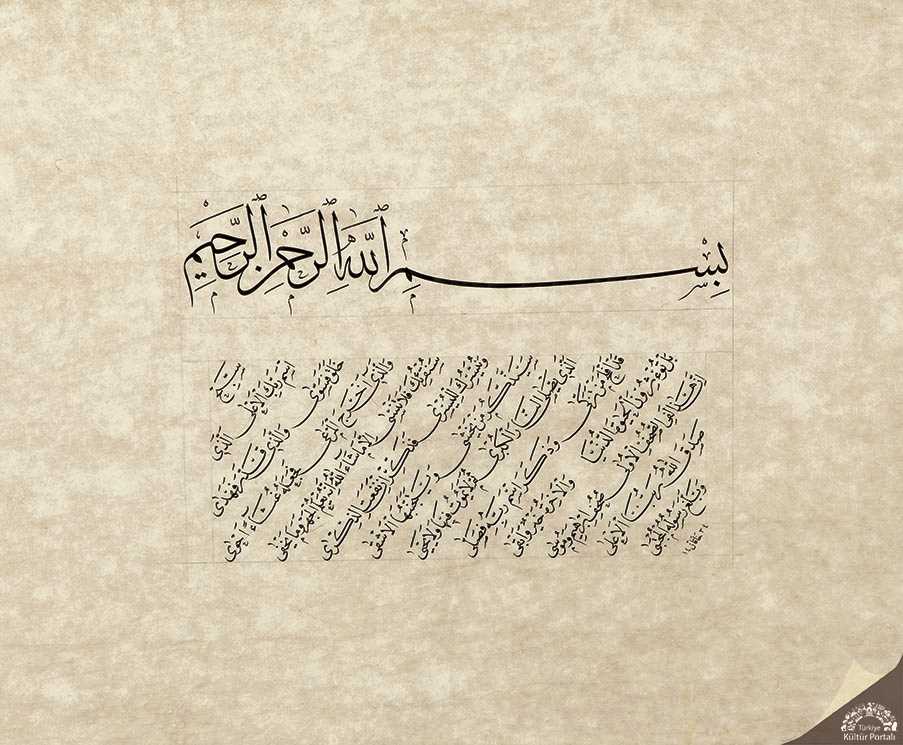 بِسْمِ اللهِ الرَّحْمٰنِ الرَّحِيمِ
سبح
اسم ربك الأعلى الذي
خلق فسوى والذي قدر فهدى
والذي أخرج المرعى فجعله غثاء أحوى
سنقرئك فلا تنسى إلا ما شاء الله إنه يعلم الجهر وما يخفى
ونيسرك لليسرى فذكر إن نفعت الذكرى
سيذكر من يخشى ويتجنبها الأشقى
الذي يصلى النار الكبرى ثم لا يموت فيها ولا يحيى
قد أفلح من تزكى وذكر اسم ربه فصلى
بل تؤثرون الحيوة الدنيا والآخرة خير وأبقى
إن هذا لفي الصحف الأولى صحف إبرهيم وموسى
صدق الله ربنا الأعلى
وبلغ رسوله المجتبى
Türkiye
Kültür Portalı